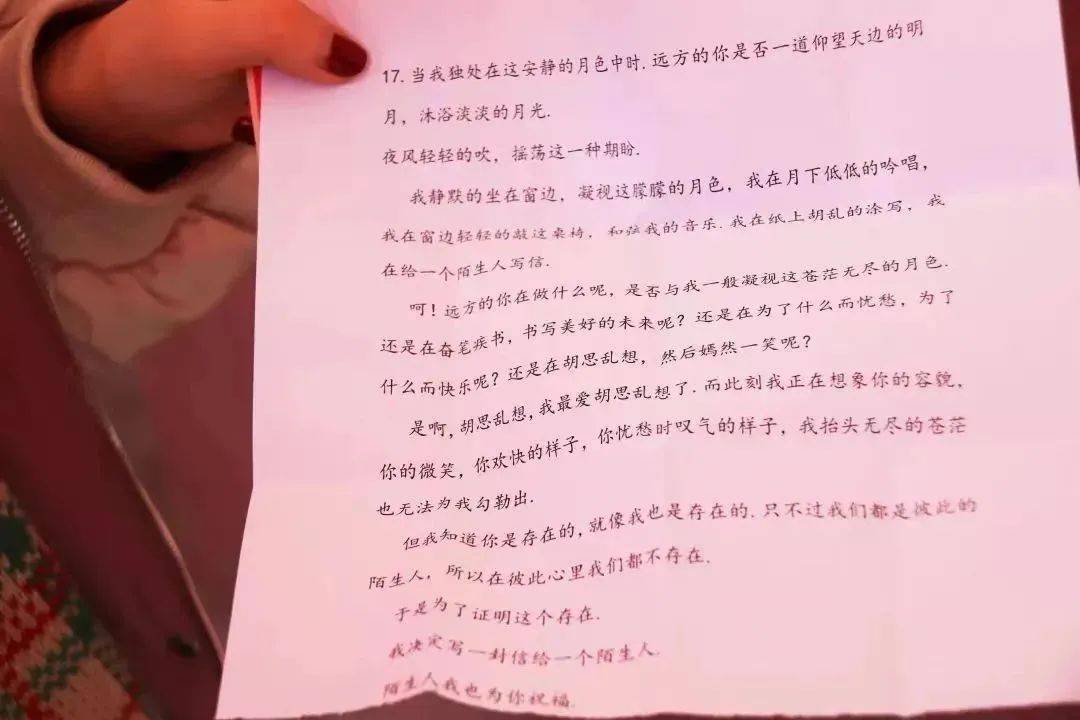 17. 当我独处在这安静的月色中时. 远方的你是否一道仰望天边的明
月，沐浴淡淡的月光.
夜风轻轻的吹，摇荡这一种期盼.
我静默的坐在窗边，凝视这朦朦的月色，我在月下低低的吟唱，
我在窗边轻轻的敲这桌椅，和弦我的音乐. 我在纸上胡乱的涂写，我
在给一个陌生人写信.
呵！远方的你在做什么呢，是否与我一般凝视这苍茫无尽的月色.
还是在奋笔疾书，书写美好的未来呢？还是在为了什么而忧愁，为了
什么而快乐呢？还是在胡思乱想，然后嫣然一笑呢？
是啊,胡思乱想,我最爱胡思乱想了. 而此刻我正在想象你的容貌，
你的微笑，你欢快的样子，你忧愁时叹气的样子，我抬头无尽的苍茫
也无法为我勾勒出.
但我知道你是存在的,就像我也是存在的. 只不过我们都是彼此的
陌生人，所以在彼此心里我们都不存在.
于是为了证明这个存在.
我决定写一封信给一个陌生人.
陌生人我也为你祝福.